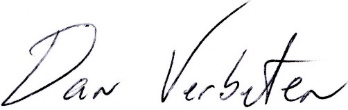 Dan Verbeten